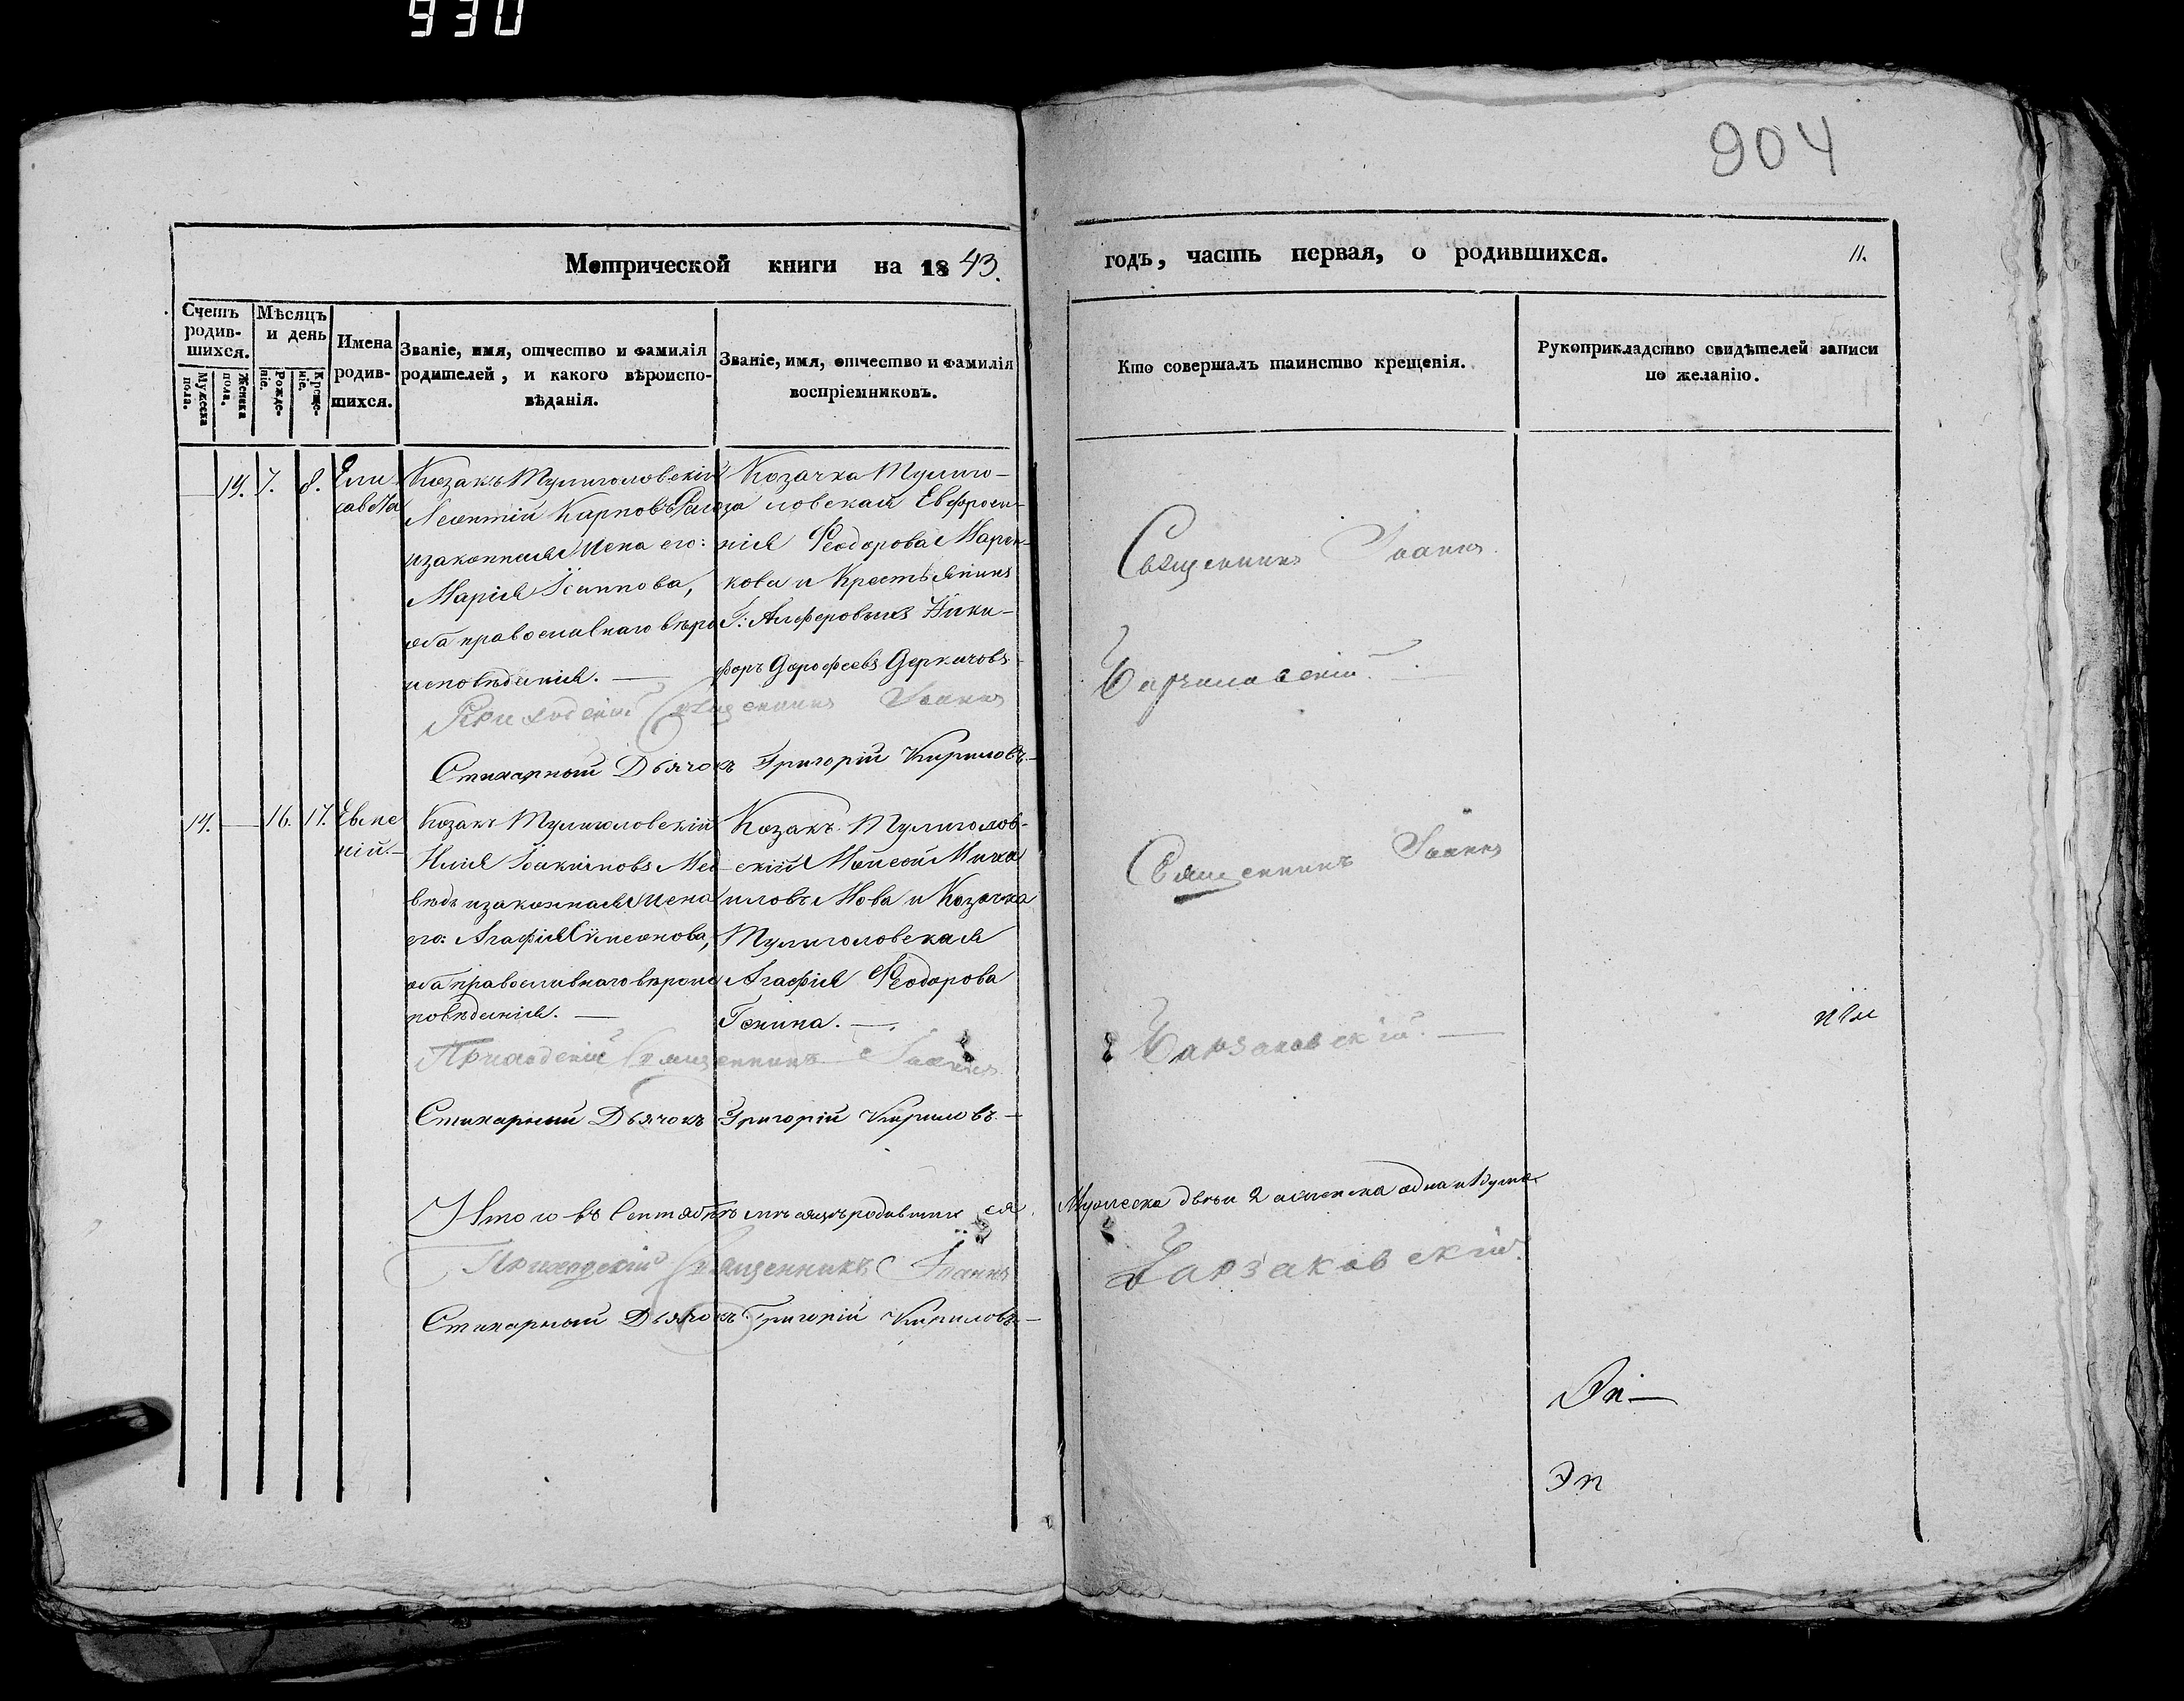 930
904
Метрической книги на 1843.
годъ, часть первая, о родившихся. 11.
Счетъ родив-шихся.
Мужеска пола.
Женска пола.
Мѣсяцъ и день
Рожде-ніе.
Креще-ніе.
Имена родив-шихся.
Званіе, имя, отчество и фамилія
родителей, и какого вѣроиспо-
вѣданія.
Званіе, имя, отчество и фамилія
воспріемниковъ.
Кто совершалъ таинство крещенія.
Рукоприкладство свидѣтелей записи
по желанію.
— 14. 7. 8.
Ели
савета
Козакъ Тулиголовскій
Леонтій Карповъ
и законная жена его:
Марія Іосипова,
оба православнаго вѣро
исповѣданія. —
Козачка Тулиго-
ловская Евфроси-
нія Феодорова
кова и Крестьянинъ
Г: Алферовыхъ Ники-
форъ Дорофеевъ Деркачовъ
Священникъ Іоаннъ
Барзаковскій. —
Приходскій Священникъ Іоаннъ
Стихарный Дьячокъ Григорій Кириловъ. —
14. — 16. 17.
Евге
ній. —
Козакъ Тулиголовскій
Илія Іоакимовъ Мед
вѣдь и законная жена
его: Агафія Симеонова,
оба православнаго вѣроис
повѣданія. —
Козакъ Тулиголов-
скій Моисей Михаи
иловъ Мова и Козачка
Тулиголовская
Агафія Феодорова
Генина. —
Священникъ Іоаннъ
Барзаковскій. —
Приходскій Священникъ Іоаннъ
Стихарный Дьячокъ Григорій Кириловъ. —
Итого въ Сентябрѣ мѣсяцѣ родившихся Мужеска двѣи 2 а женска одна
Приходскій Священникъ Іоаннъ Барзаковскій.
Стихарный Дьячокъ Григорій Кириловъ —